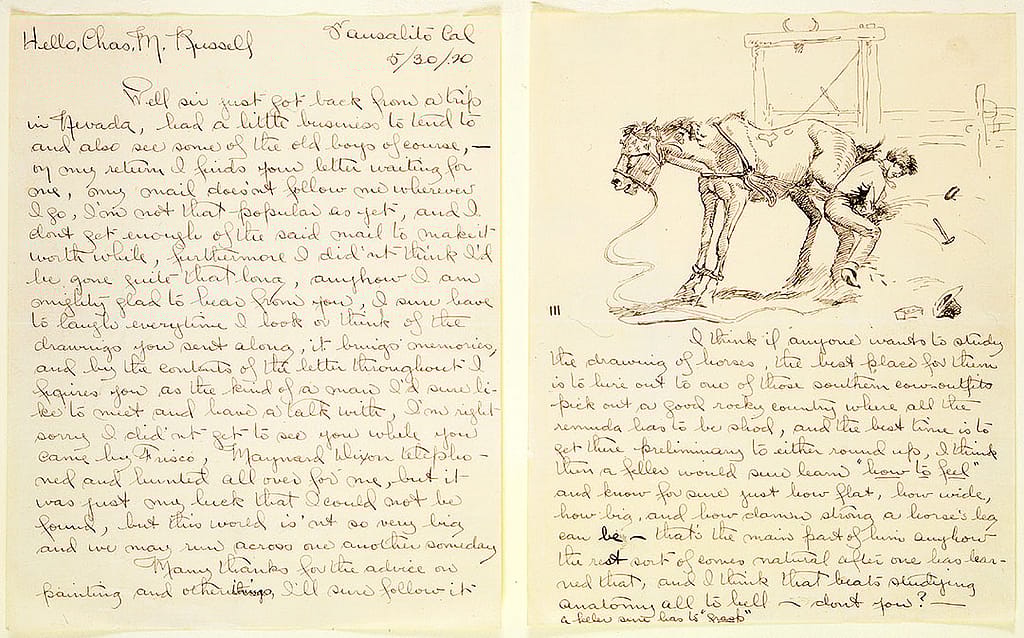 Hello, Chas, M. Russell
Sausalito Cal
5/30/20
Well sir just got back from a trip
in Nevada, had a little business to tend to
and also see some of the old boys of course, —
on my return I finds your letter waiting for
me, my mail does'nt follow me wherever
I go, I'm not that popular as yet, and I
dont get enough of the said mail to make it
worth while, furthermore I did'nt think I'd
be gone quite that long, anyhow I am
mighty glad to hear from you, I sure have
to laugh everytime I look or think of the
drawings you sent along, it brings memories,
and by the contents of the letter throughout I
figures you as the kind of a man I'd sure li-
ke to meet and have a talk with, I'm right
sorry I did'nt get to see you while you
came by Frisco, Maynard Dixon telepho-
ned and hunted all over for me, but it
was just my luck that I could not be
found, but this world is'nt so very big
and we may run across one another someday
Many thanks for the advice on
painting and other things, I'll sure follow it
III
I think if anyone wants to study
the drawing of horses, the best place for them
is to hire out to one of those southern cow-outfits
pick out a good rocky country where all the
remuda has to be shod, and the best time is to
get there preliminary to either round up, I think
then a feller would sure learn "how to feel"
and know for sure just how flat, how wide,
how big, and how damn strong a horse's leg
can be — that's the main part of him anyhow
the rest sort of comes natural after one has lear-
ned that, and I think that beats studying
anatomy all to hell — dont you? —
a feller sure has to